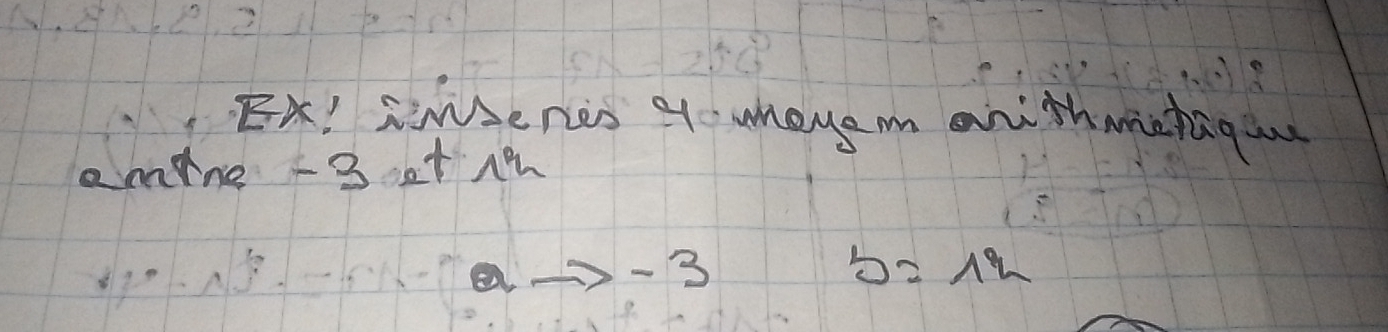 Ex: inseres 4 moyem arithmetique
emtre -3 et 12
a → -3 b = 12